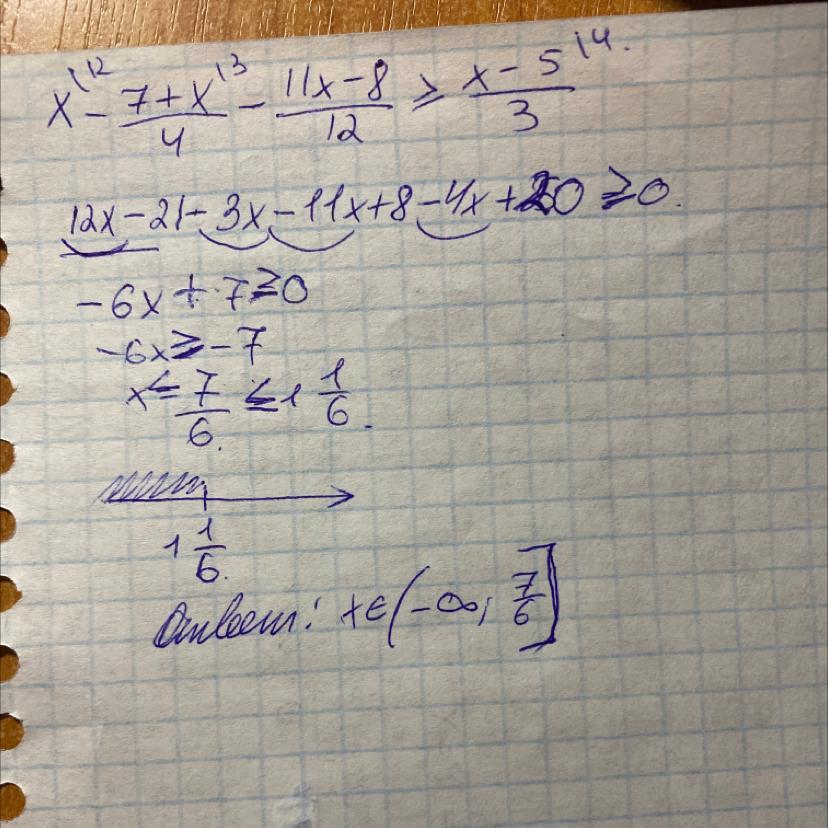 x^{\12} - \frac{7+x^{\3}}{4} - \frac{11x-8}{12} ≥ \frac{x-5^{\4.}}{3}
12x-21-3x-11x+8-4x+20 ≥0.
-6x+7≥0
-6x≥-7
x≤\frac{7}{6.} ≤1\frac{1}{6}.
1\frac{1}{6.}
Ответ: x∈(-∞; \frac{7}{6}]